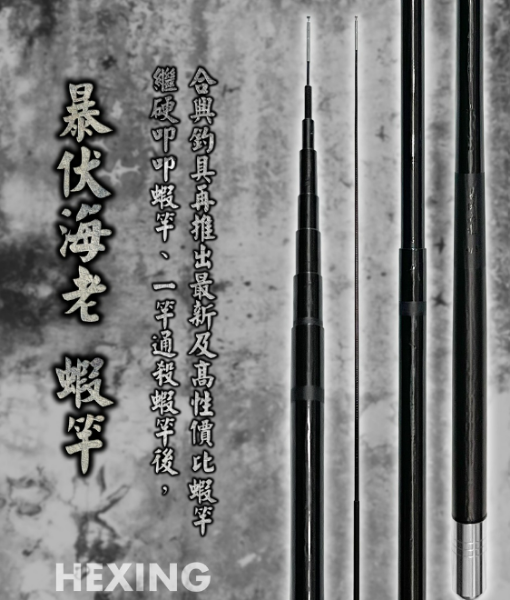 繼硬叩叩蝦竿、一竿通殺蝦竿後，
合興釣具再推出最新及高性價比蝦竿
暴伏海老 蝦竿
HEXING